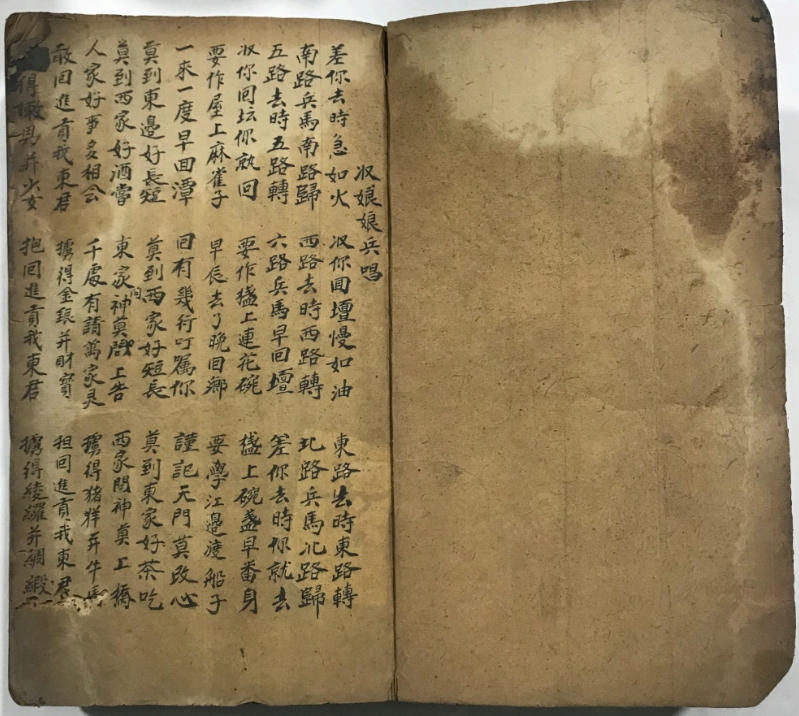 収娘娘兵唱
差你去時急如火 収你回壇慢如油 東路去時東路轉
南路兵馬南路歸 西路去時西路轉 北路兵馬北路歸
五路去時五路轉 六路兵馬早回壇 差你去時你就去
収你回坛你就回 要作盞上連花碗 盞上碗盞早番身
要作屋上麻雀子 早辰去了晚回鄉 要學江邊渡船子
一來一度早回潭 回有幾行叮属你 謹記天門莫改心
莫到東邊好長短 莫到西家好短長 莫到東家好茶吃
莫到西家好酒嘗 東家神莫問上告 西家問神莫上橋
人家好事多相会 千處有請萬家灵 掳得猪羊并牛馬
敢回進貢我東君 掳得金銀并財寳 担回進貢我東君
得 男并少女 抱回進貢我東君 掳得綾羅并綢緞